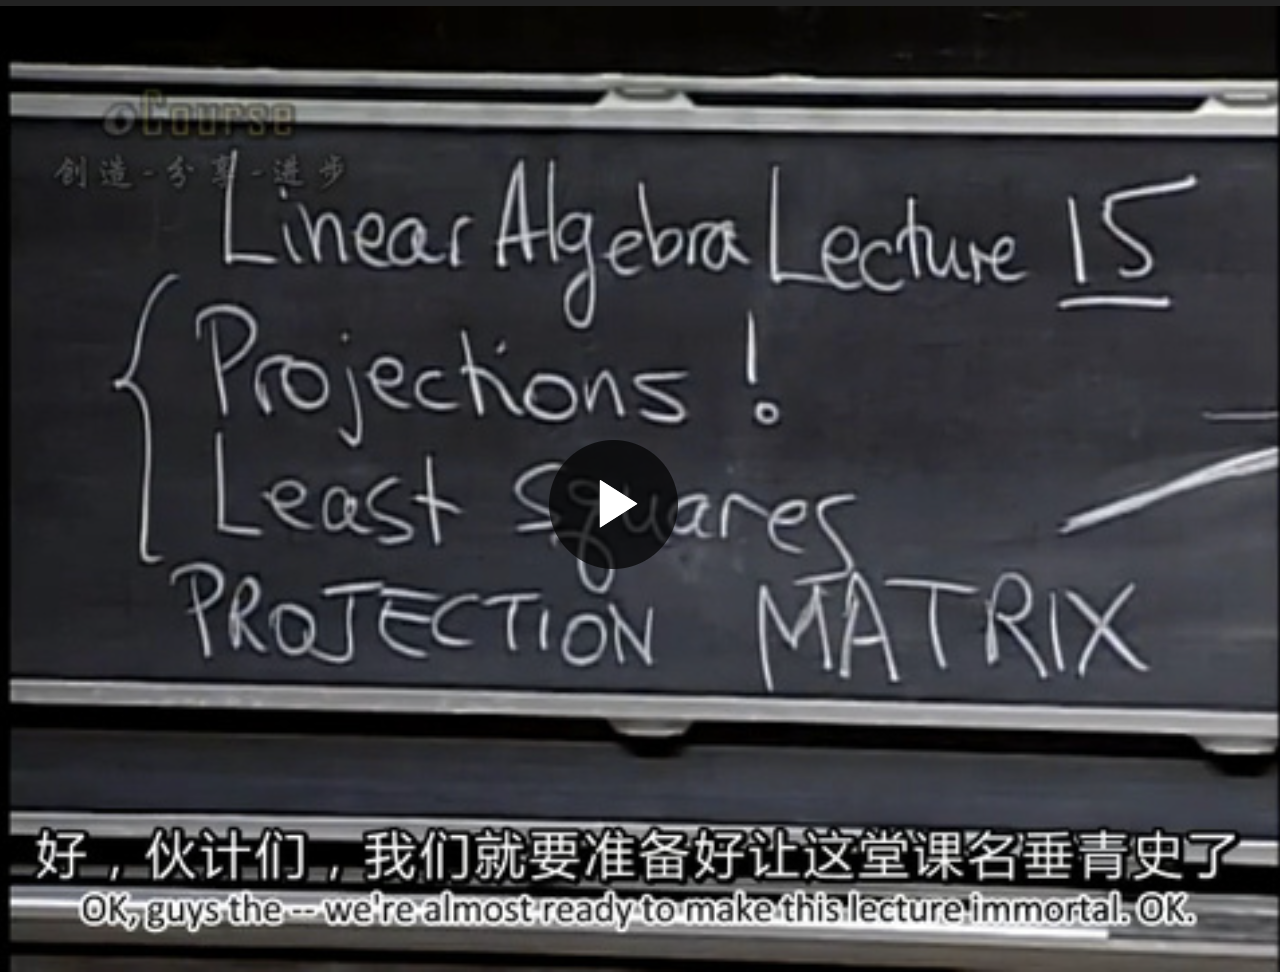 oCourse
创造-分享-进步
Linear Algebra Lecture 15
Projections !
Least Squares
PROJECTION MATRIX
好，伙计们，我们就要准备好让这堂课名垂青史了
OK, guys the -- we're almost ready to make this lecture immortal. OK.